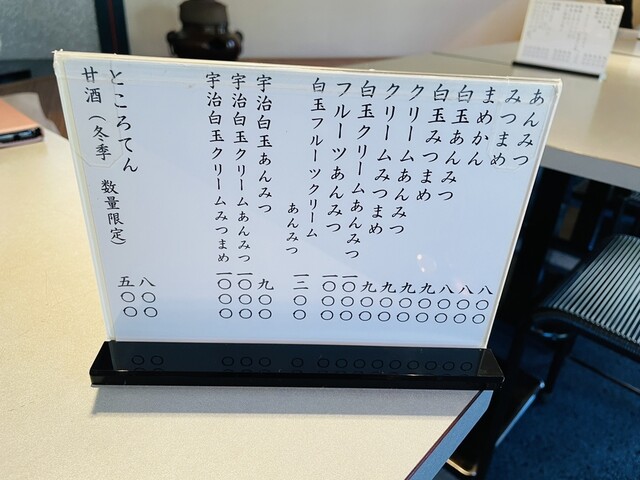 あんみつ 八〇〇
みつまめ 八〇〇
まめかん 八〇〇
白玉あんみつ 九〇〇
白玉みつまめ 九〇〇
クリームあんみつ 九〇〇
クリームみつまめ 九〇〇
白玉クリームあんみつ 一〇〇〇
フルーツあんみつ 一〇〇〇
白玉フルーツクリーム
あんみつ 一二〇〇
宇治白玉あんみつ 九〇〇
宇治白玉クリームあんみつ 一〇〇〇
宇治白玉クリームみつまめ 一〇〇〇
ところてん 八〇〇
甘酒（冬季 数量限定） 五〇〇